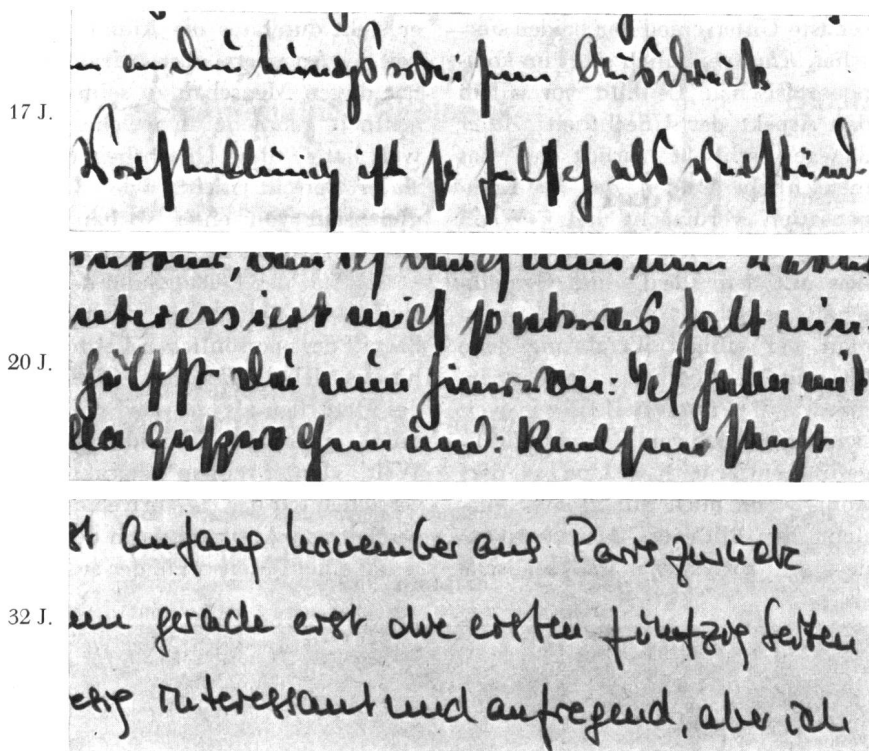 17 J.
n andeutungsweise zum Ausdruck
Vorstellung ist so falsch als Verständ-
20 J.
interessiert mich so etwas halt nin-
hältst Du nun hiervon: Ich habe mit
lla gesprochen und:
32 J.
st Anfang November aus Paris zurück
nn gerade erst die ersten fünfzig Seiten
esig interessant und aufregend, aber ich